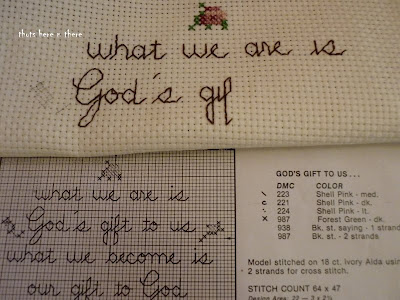 thots here n there
what we are is
God's gif
what we are is
God's gift to us
what we become is
our gift to God
GOD'S GIFT TO US...
DMC COLOR
\ 223 Shell Pink - med.
c 221 Shell Pink - dk.
· 224 Shell Pink - lt.
x 987 Forest Green - dk.
938 Bk. st. saying - 1 strand
987 Bk. st. - 2 strands
Model stitched on 18 ct. ivory Aida using
2 strands for cross stitch.
STITCH COUNT 64 x 47
Design Area: